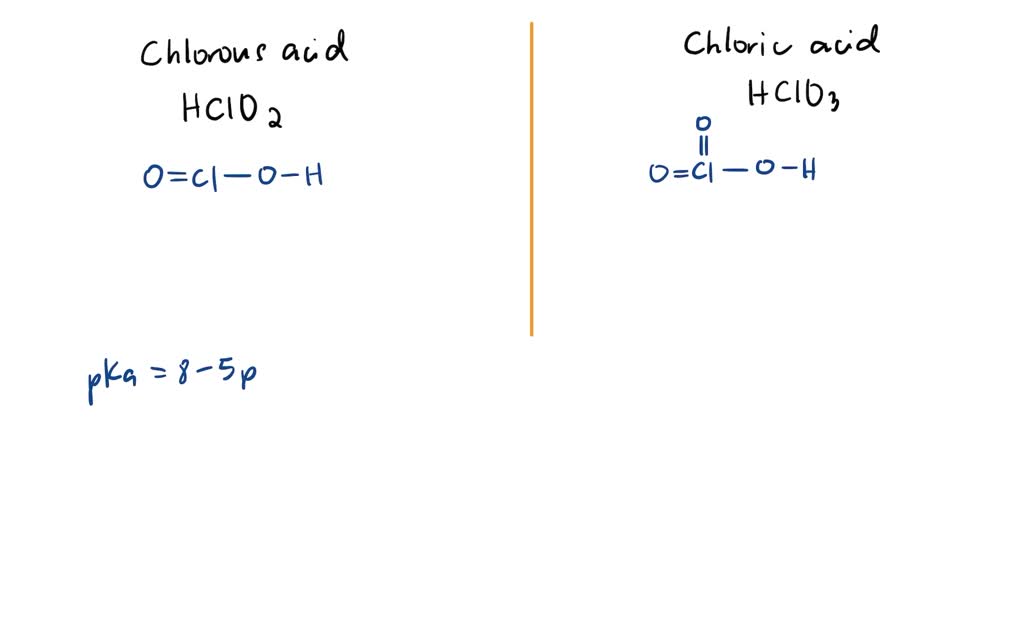 Chlorous acid
HClO2
O=Cl—O—H
Chloric acid
HClO3
O
||
O=Cl—O—H
pKa = 8-5p